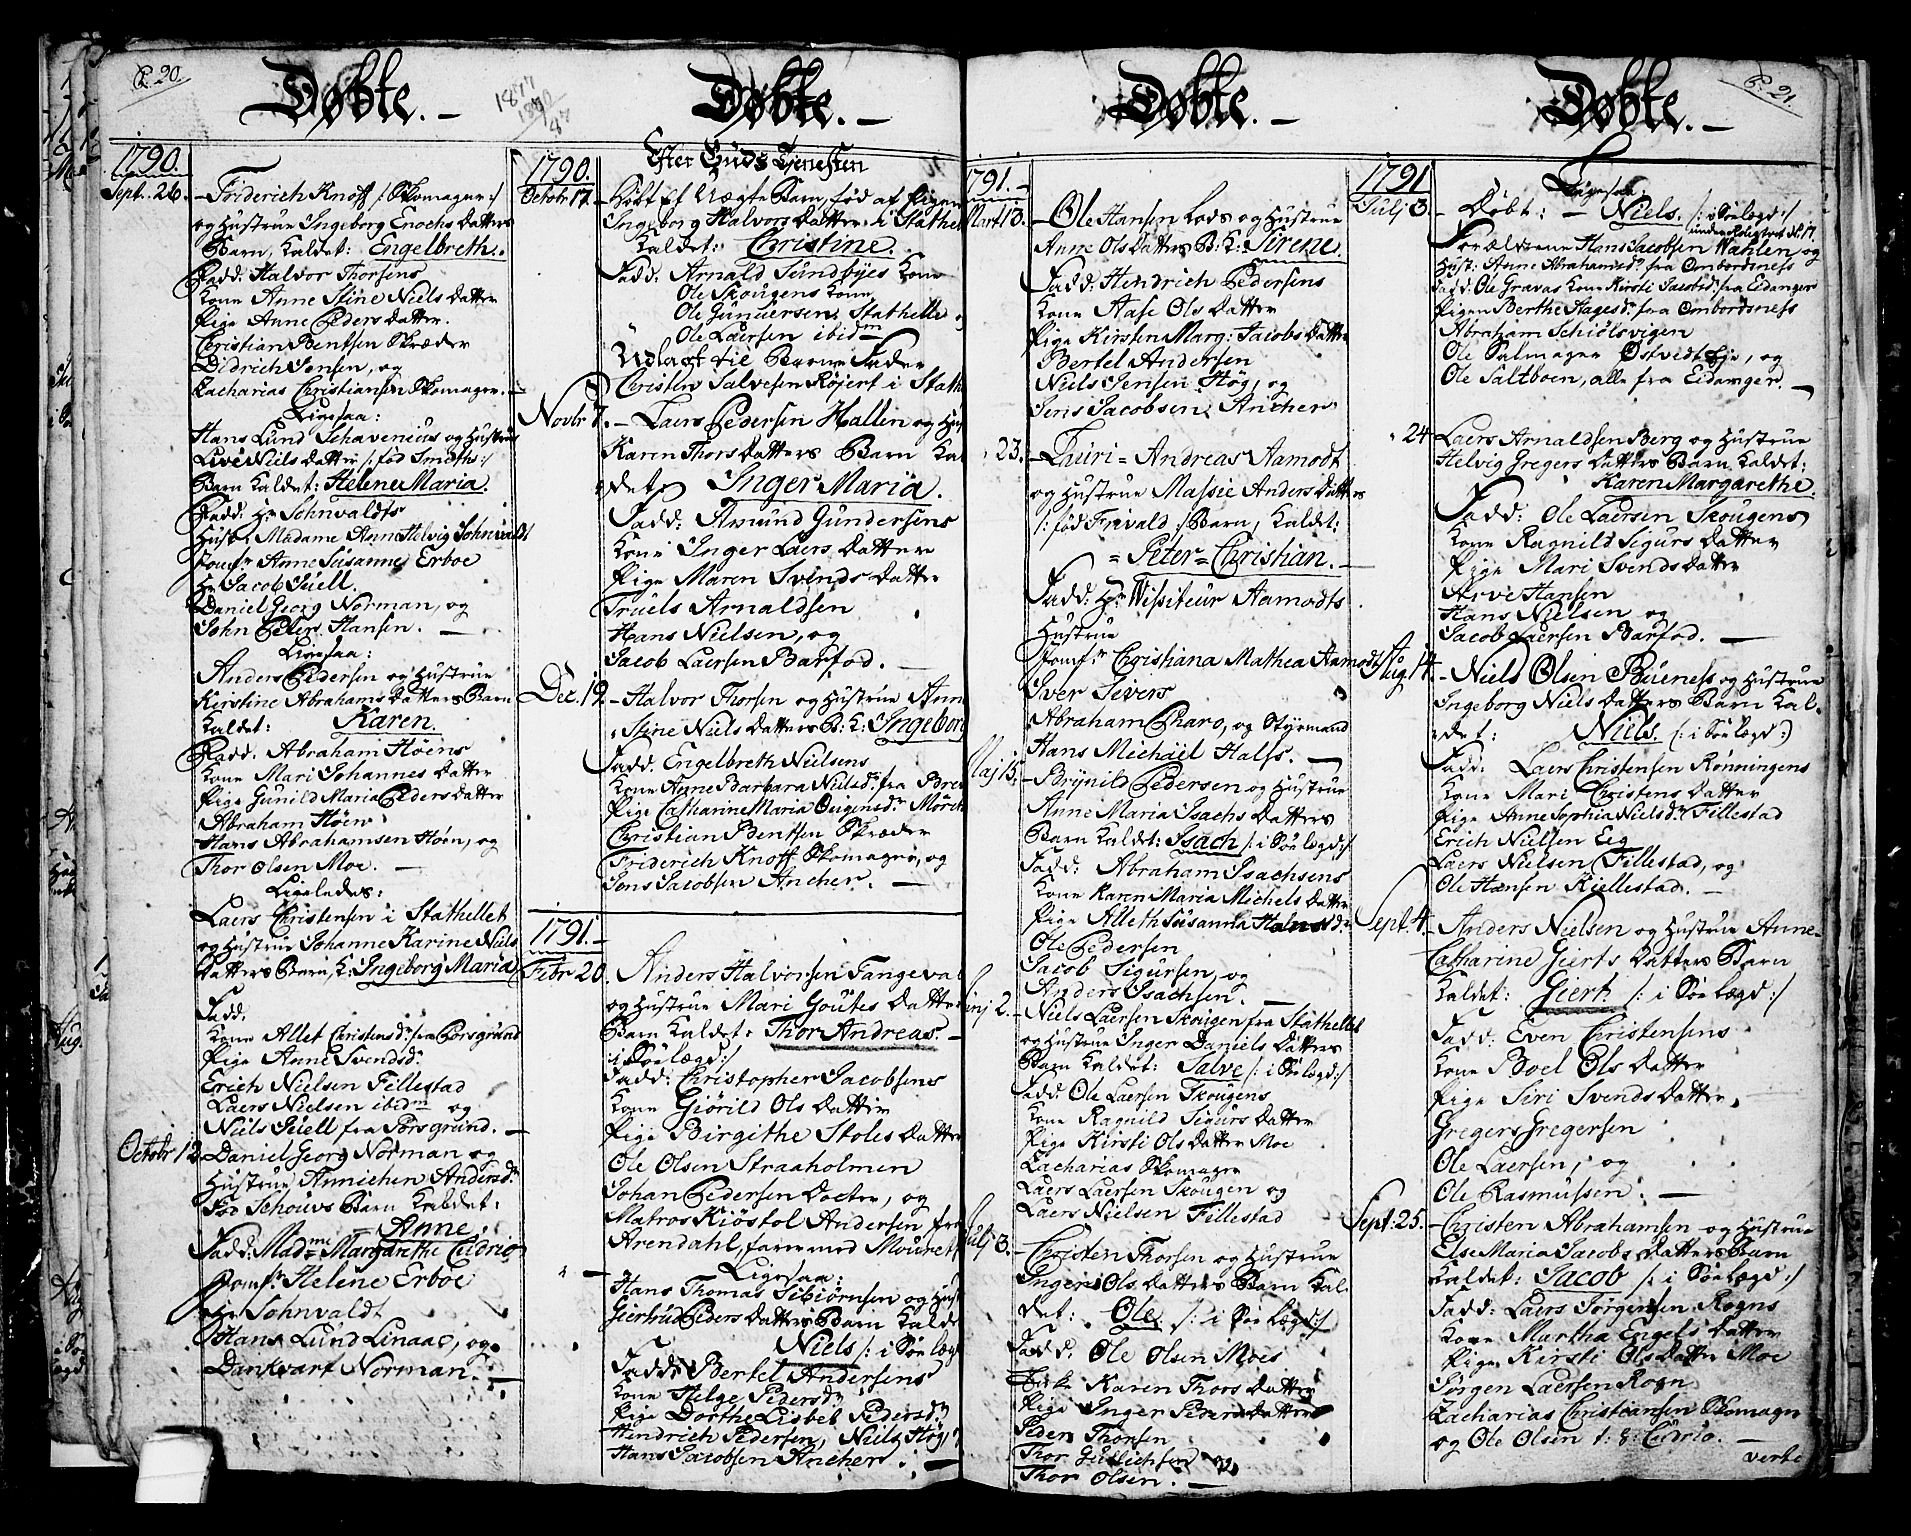 P. 20.
Døbte.
1790.
Sept. 26.
Friderich Knoff /: Skomager :/
og Hustrue Ingeborg Enochs Datters
Barn, kaldet: Engelbreth.
Fadd: Halvor Thorsens
Kone Anne Stine Niels Datter
Pige Anne Peders Datter.
Christian Bentsen Skræder
Didrich Jensen, og
Zacharias Christiansen Skomager.
Ligesaa:
Hans Lund Schavenius og Hustrue
Live Niels Datter /: fød Smiths :/
Barn kaldet: Helene Maria.
Fadd: Hr Sohnvaldts
Hust. Madame Anne Helvig Sohnvaldt
Jomfr Anne Susanne Erboe
Hr Jacob Juell.
Daniel Georg Norman, og
John Peter Hansen.
Ligesaa:
Anders Pedersen og Hustrue
Kirstine Abrahams Datters Barn
kaldet: Karen.
Fadd: Abraham Høens
Kone Mari Johannes Datter
Pige Gunild Maria Peders Datter
Abraham Høen
Hans Abrahamsen Høen, og
Thor Olsen Moe.
Ligeledes:
Laers Christensen i Stathellet
og Hustrue Johanne Karine Niels
Datters Barn, K: Ingeborg Maria
Fadd:
Kone Allet Christensd. fra Porsgrund
Pige Anne Svendsd.
Erich Nielsen Fillestad
Laers Nielsen ibidm og
Niels Juell fra Porsgrund.
Octobr 12
Daniel Georg Norman og
Hustrue Annichen Andersd.
Fød Schouvs Barn kaldet:
Anne.
Fadd: Madme Margarethe Cudrio
Jomfr. Helene Erboe
Hr Sohnvaldt
Hans Lund Linaae, og
Dankvart Norman.
Døbte.
1877
1790.
Octobr 17.
Efter Guds Tjenesten
Døbt Et Uægte Barn, fød af Pigen
Ingeborg Halvors Datter i Stathel
kaldet: Christine.
Fadd: Arnald Sundbyes Kone
Ole Skougens Kone
Ole Gundersen, Stathelle
Ole Laersen ibidm
Udlagt til Barne Fader
Christen Salvesen Røjert i Stath
Novbr 7.
Laers Pedersen Hallen og Hus
Karen Thors Datters Barn Kal
det: Inger Maria.
Fadd: Amund Gundersens
Kone Inger Laers Datter
Pige Maren Svends Datter
Truels Arnaldsen
Hans Nielsen, og
Jacob Laersen Barfod.
Dec. 19
Halvor Thorsen og Hustrue Anne
Stine Niels Datters B: K: Ingeborg
Fadd: Engelbreth Nielsens
Kone Anne Barbara Nielsd. fra Brev
Pige Catharine Maria Ougensdr Mörch
Christian Bentsen Skræder
Friderich Knoff Skomager, og
Jens Jacobsen Ancher.
1791.
Febr 20.
Anders Halvorsen Tangeval
og Hustrue Mari Goutes Datter
Barn kaldet: Thor Andreas.
/: i Søe lægd :/
Fadd: Christopher Jacobsens
Kone Giörild Ols Datter
Pige Birgithe Stoles Datter
Ole Olsen Straaholmen
Johan Pedersen Docter, og
Matros Kiöstol Andersen fra
Arendahl, farer med Mouret
Ligesaa:
Hans Thomas Sibiörnsen og Hust
Giertrud Peders Datters Barn Kaldet
Niels /: i Søe lægd
Fadd: Bertel Andersens
Kone Helge Pedersdr
Pige Dorthe Lisbet Pedersdr
Hindrich Pedersen, Niels Høg,
Hans Jacobsen Ancher.
Døbte.
1791.
Mart 13.
Ole Hansen Lods og Hustrue
Anne Ols Datters B: K: Sirene.
Fadd: Hendrich Pedersens
Kone Aase Ols Datter
Pige Kirsten Marg: Jacobs Datter
Bertel Andersen
Niels Jensen Høg, og
Jens Jacobsen Ancher
23.
Luiri = Andreas Aamodt
og Hustrue Massie Anders Datters
/: fød Frivald :/ Barn, kaldet:
= Peter = Christian.
Fadd: Hr Wissiteur Aamodts
Hustrue
Jomfr Christiana Mathea Aamodt
Iver Sivers
Abraham Charo, og Styrmand
Hans Michael Halss.
Maj 15.
Brynild Pedersen og Hustrue
Anne Maria Isachs Datters
Barn kaldet: Isach /: i Søe lægd :/
Fadd: Abraham Isachsens
Kone Karen Maria Michels Datter
Pige Alleth Susanna Halvorsdr
Ole Pedersen
Jacob Sigursen, og
Anders Isachsen.
Junj 2.
Niels Laersen Skougen fra Stathellet
og Hustrue Inger Daniels Datters
Barn kaldet: Salve /: i Søe lægd :/
Fadd: Ole Laersen Skougens
Kone Ragnild Sigurs Datter
Pige Kirsti Ols Datter Moe
Zacharias Skomager
Laers Laersen Skougen og
Laers Nielsen Fillestad
Julj 3.
Christen Thorsen og Hustrue
Inger Ols Datters Barn Kal
det: Ole. /: i Søe lægd :/
Fadd: Ole Olsen Moes
Kone Karen Thors Datter
Pige Inger Peders Datter
Peder Thorsen
Thor Gullichsen og
Thor Olsen.
P. 21.
Døbte.
1791
Julj 3.
Ligesaa:
Døbt: Niels. /: i Søe lægd :/
under Rulgtret No. 17
Forældrene Hans Jacobsen Wahlen og
Hust: Anne Abrahamsdr fra Ombordsness
Fadd: Ole Gravas Kone Kirsti Jacobsdr fra Eidanger
Pigen Berthe Aagesdr fra Ombordsness
Abraham Schiölsvigen
Ole Salmager Østvidt Eje, og
Ole Saltboen, alle fra Eidanger.
24
Laers Arnaldsen Berg og Hustrue
Helvig Gregers Datters Barn kaldet:
Karen Margarethe.
Fadd: Ole Laersen Skougens
Kone Ragnild Sigurs Datter
Pige Mari Svends Datter
Arve Hansen
Hans Nielsen og
Jacob Laersen Barfod.
Aug 14.
Niels Olsen Bueness og Hustrue
Ingeborg Niels Datters Barn Kal
det: Niels. /: i Søe lægd :/
Fadd: Laers Christensen Rønningens
Kone Mari Christens Datter
Pige Anne Sophia Nielsdr Fillestad
Erich Nielsen Eeg
Laers Nielsen Fillestad, og
Ole Hansen Kiellestad.
Sept. 4.
Anders Nielsen og Hustrue Anne
Catharine Gierts Datters Barn
kaldet: Giert. /: i Søe lægd :/
Fadd: Even Christensens
Kone Boel Ols Datter
Pige Siri Svends Datter,
Gregers Gregersen
Ole Laersen, og
Ole Rasmussen.
Sept: 25.
Christen Abrahamsen og Hustrue
Else Maria Jacobs Datters Barn
kaldet: Jacob /: i Søe lægd :/
Fadd: Laers Jørgensen Rogns
Kone Martha Engels Datter
Pige Kirsti Ols Datter Moe
Jørgen Laersen Rogn
Zacharias Christiansen Skomager
og Ole Olsen t: 8: Cudrio.
verte